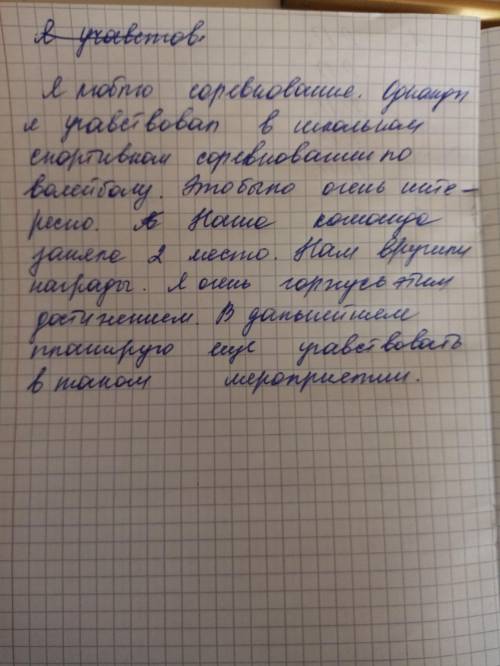 Я учавствов.
Я люблю соревнование. Однажды
я учавствовал в школьном
спортивном соревновании по
волейболу. Это было очень инте-
ресно. Наша команда
заняла 2 место. Нам вручили
награды. Я очень горжусь этим
достижением. В дальнейшем
планирую еще учавствовать
в таком мероприятии.